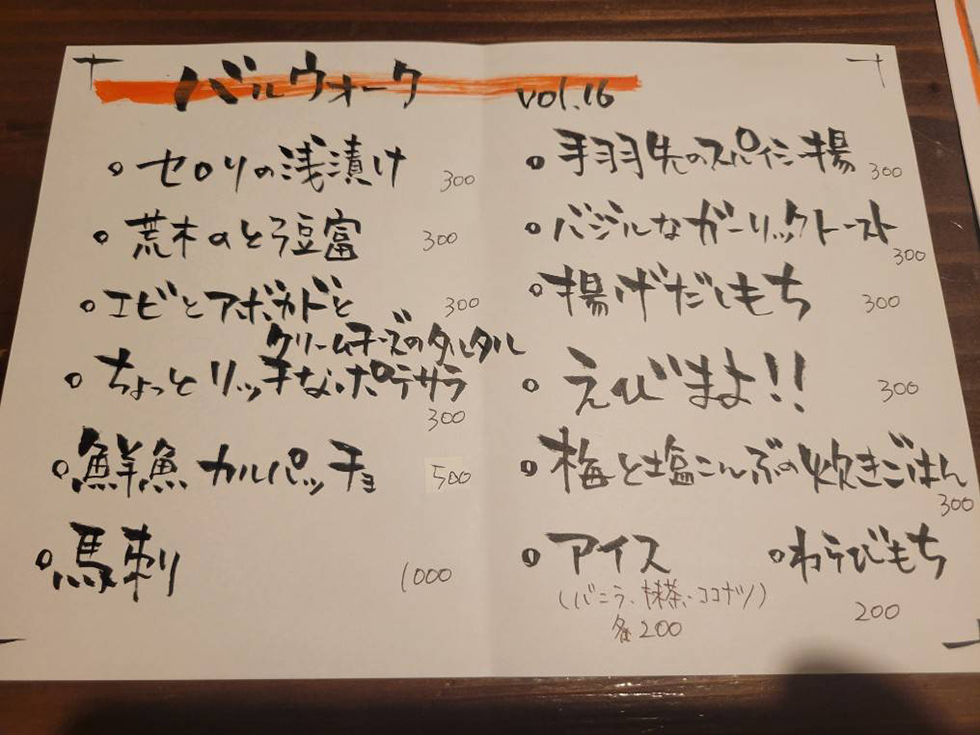 バルウォーク vol.16
。セロリの浅漬け 300
。荒木のとろ豆富 300
。エビとアボカドと 300
クリームチーズのタルタル
。ちょっとリッチなポテサラ
300
。鮮魚カルパッチョ 500
。馬刺 1000
。手羽先のスパイシー揚 300
。バジルなガーリックトースト
300
。揚げだしもち 300
。えびまよ!! 300
。梅と塩こんぶの炊きごはん
300
。アイス
(バニラ、抹茶、ココナツ)
各200
。わらびもち
200